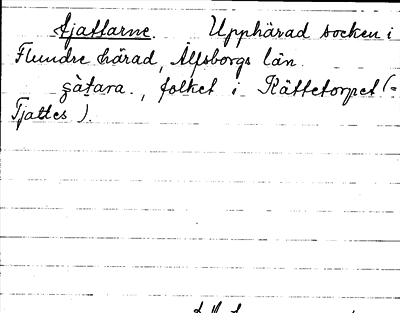 Tjattarne. Upphärad socken i
Flundre härad, Älfsborgs län.
folket i Rättetorpet (=
Tjattes).